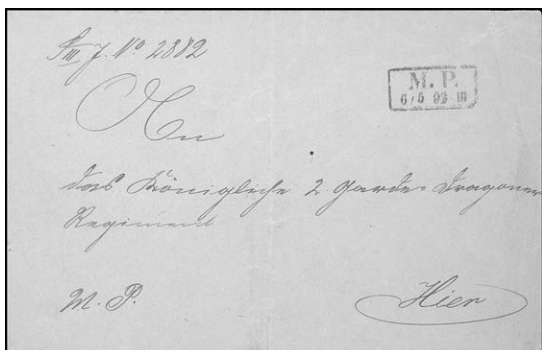 S III J. No 2882
M. P.
6/5 93 III
An
das Königliche 2 Garde-Dragoner
Regiment
M. P.
Hier